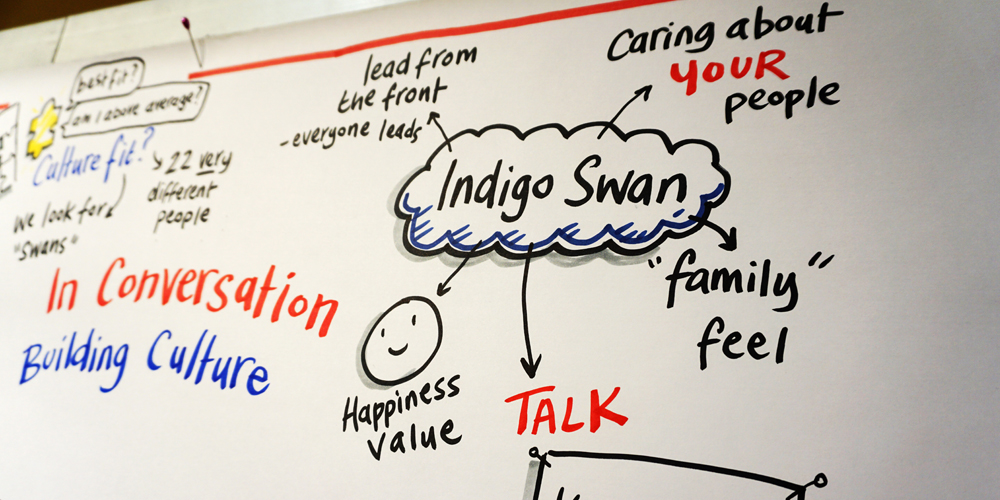 best fit?
am I above average?
Culture fit?
22 very
different
people
we look for
"swans"
In Conversation
Building Culture
lead from
the front
-everyone leads
Caring about
YOUR
people
Indigo Swan
"family"
feel
Happiness
value
TALK